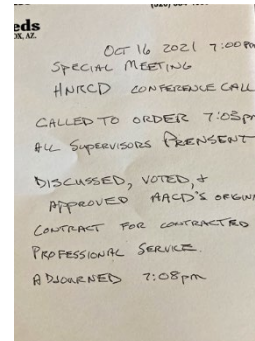 eds
OX, AZ.
OCT 16 2021 7:00 PM
SPECIAL MEETING
HNRCD CONFERENCE CALL
CALLED TO ORDER 7:03pm
ALL SUPERVISORS PRENSENT
DISCUSSED, VOTED, +
APPROVED AACD'S ORGIN
CONTRACT FOR CONTRACTED
PROFESSIONAL SERVICE.
ADJOURNED 7:08pm